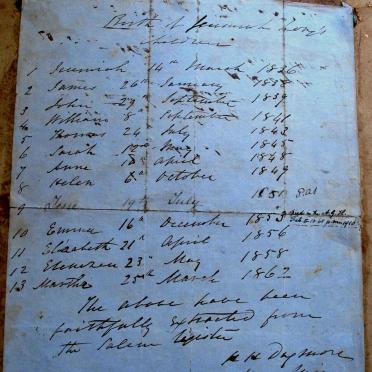 Birth of Jeremiah
Children
1 Jeremiah 14th March 1836
2 James 26th January 1838
3 John 29 September 1839
4 William 8 September 1841
5 Thomas 24 July 1843
6 Sarah 12th May 1845
7 Anne 18th April 1848
8 Helen 6th October 1849
9 Jane 19th July 1851
10 Emma 16th December 1853
11 Elizabeth 21st April 1856
12 Ebenezer 23rd May 1858
13 Martha 25th March 1862
The above have been
faithfully extracted from
the Salem Register
H H Dugmore